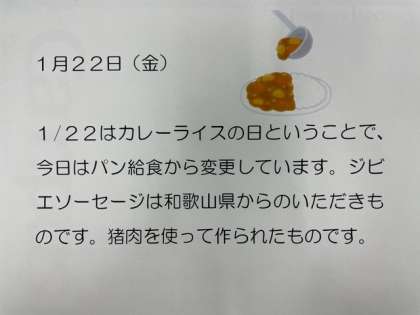 １月２２日（金）
１/２２はカレーライスの日ということで、
今日はパン給食から変更しています。ジビ
エソーセージは和歌山県からのいただきも
のです。猪肉を使って作られたものです。